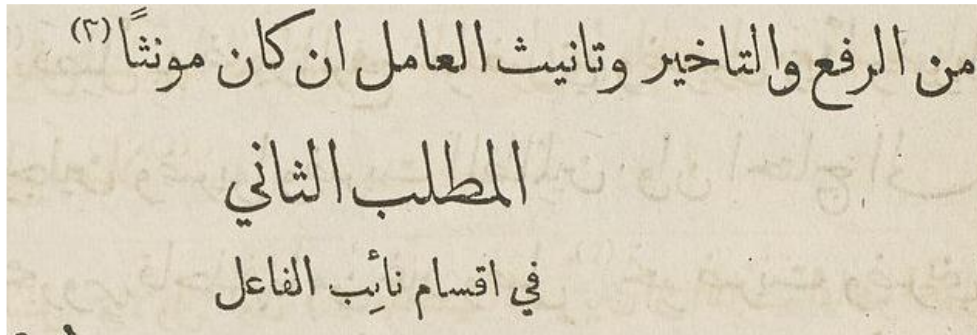 من الرفع والتاخير وتانيث العامل ان كان مونثًا (٣)
المطلب الثاني
في اقسام نائِب الفاعل